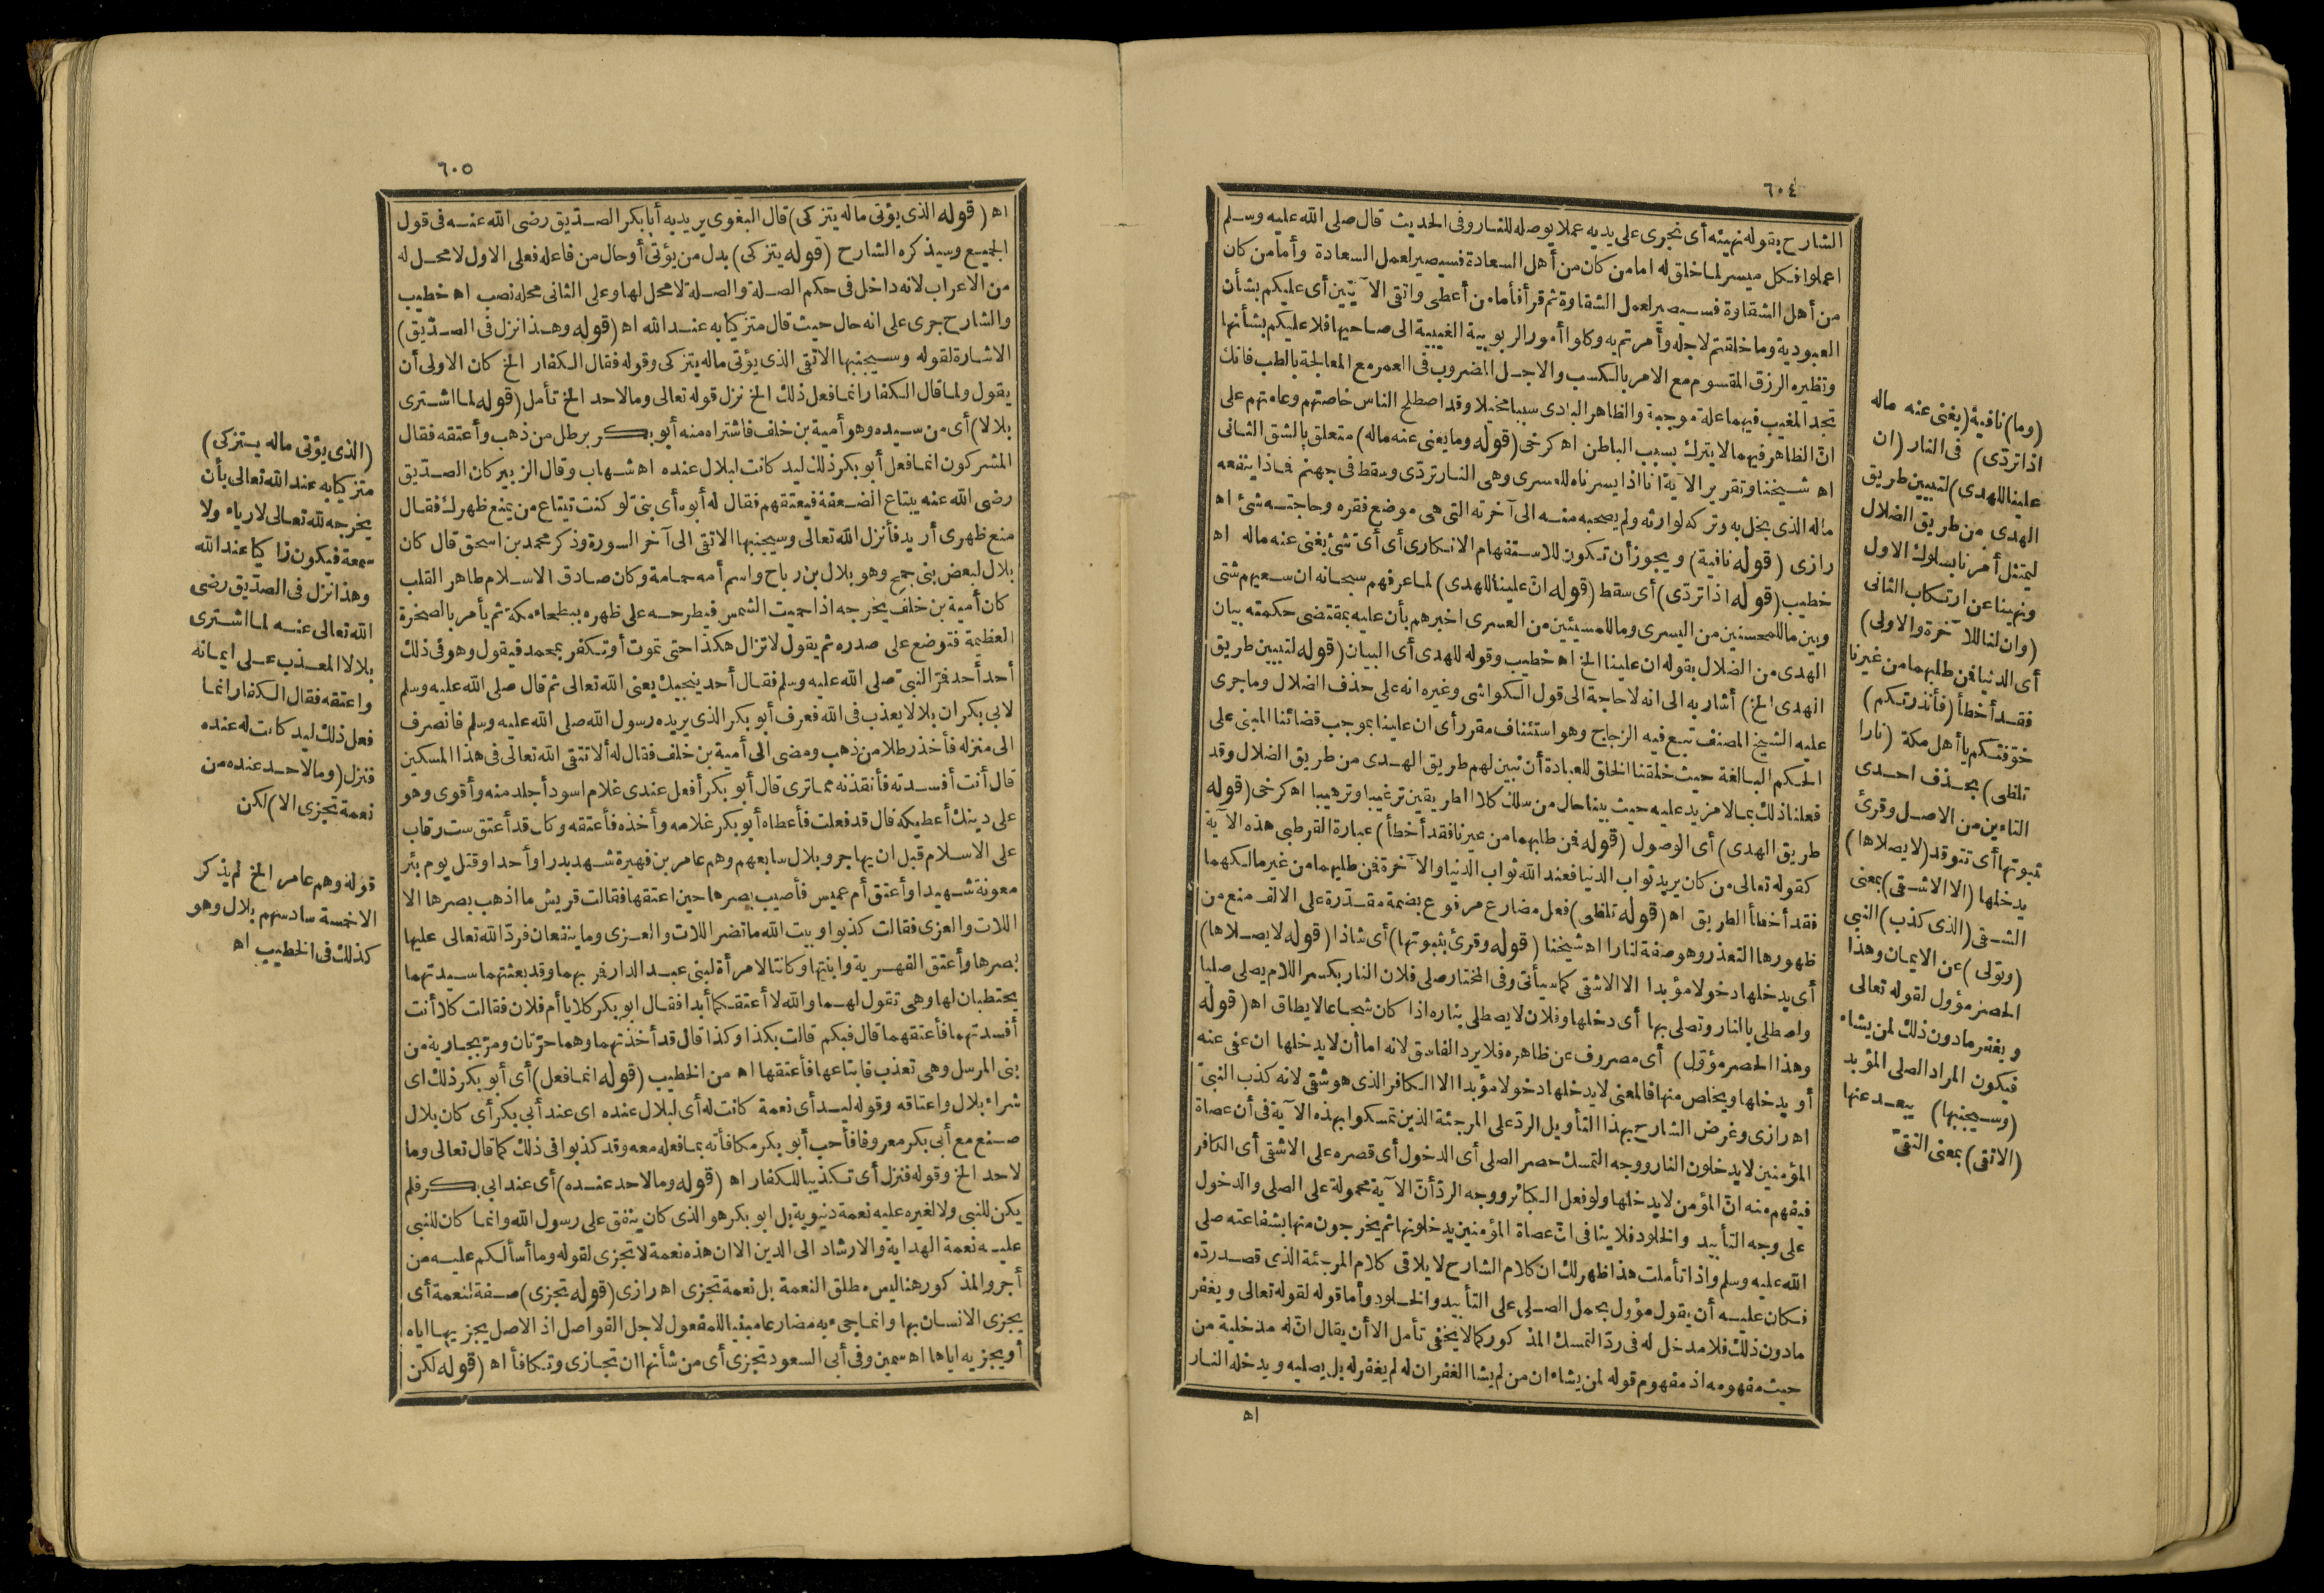 ٦٠٤
الشارح بقوله نهيئه أى نجرى على يديه عملا يوصله للنار وفى الحديث قال صلى الله عليه وسلم
اعملوا فكل ميسر لما خلق له اما من كان من أهل السعادة فسيصير لعمل السعادة وأما من كان
من أهل الشقاوة فسيصير لعمل الشقاوة ثم قرأ فأما من أعطى واتقى الآيتين أى عليكم بشأن
العبودية وما خلقتم لاجله وأمرتم به وكلوا أمور الربوبية الغيبية الى صاحبها فلا عليكم بشأنها
ونظيره الرزق المقسوم مع الامر بالكسب والاجل المضروب فى العمر مع المعالجة بالطب فانك
تجد المغيب فيهما علة موجبة والظاهر البادى سببا مخيلا وقد اصطلح الناس خاصتهم وعامتهم على
انّ الظاهر فيهما لا يترك بسبب الباطن اه كرخى (قوله وما يغنى عنه ماله) متعلق بالشق الثانى
اه شيخنا وتقرير الآية انا اذا يسرناه للعسرى وهى النار تردّى وسقط فى جهنم فماذا ينفعه
ماله الذى بخل به وتركه لوارثه ولم يصحبه منه الى آخرته التى هى موضع فقره وحاجته شئ اه
رازى (قوله نافية) ويجوز أن تكون للاستفهام الانكارى أى أىّ شئ يغنى عنه ماله اه
خطيب (قوله اذا تردّى) أى سقط (قوله انّ علينا للهدى) لما عرفهم سبحانه ان سعيهم شتى
وبين ما للمحسنين من اليسرى وما للمسيئين من العسرى اخبرهم بأن عليه بمقتضى حكمته بيان
الهدى من الضلال بقوله ان علينا الخ اه خطيب وقوله للهدى أى البيان (قوله لتبيين طريق
الهدى الخ) أشار به الى انه لا حاجة الى قول الكواشى وغيره انه على حذف الضلال وما جرى
عليه الشيخ المصنف تبع فيه الزجاج وهو استئناف مقرر أى ان علينا بموجب قضائنا المبنى على
الحكم البالغة حيث خلقنا الخلق للعبادة أن نبين لهم طريق الهدى من طريق الضلال وقد
فعلنا ذلك بما لا مزيد عليه حيث بينا حال من سلك كلا الطريقين ترغيبا وترهيبا اه كرخى (قوله
طريق الهدى) أى الوصول (قوله فمن طلبهما من غيرنا فقد أخطأ) عبارة القرطبى هذه الآية
كقوله تعالى من كان يريد ثواب الدنيا فعند الله ثواب الدنيا والآخرة فمن طلبهما من غير مالكهما
فقد أخطأ الطريق اه (قوله تلظى) فعل مضارع مرفوع بضمة مقدّرة على الالف منع من
ظهورها التعذر وهو صفة لنارا اه شيخنا (قوله وقرئ بثبوتها) أى شاذا (قوله لا يصلاها)
أى يدخلها دخولا مؤبدا الا الاشقى كما سيأتى وفى المختار صلى فلان النار بكسر اللام يصلى صليا
واصطلى بالنار وتصلى بها أى دخلها وفلان لا يصطلى بناره اذا كان شجاعا لا يطاق اه (قوله
وهذا الحصر مؤوّل) أى مصروف عن ظاهره فلا يرد الفاسق لانه اما أن لا يدخلها ان عفى عنه
أو يدخلها ويخلص منها فالمعنى لا يدخلها دخولا مؤبدا الا الكافر الذى هو شقى لانه كذب النبىّ
اه رازى وغرض الشارح بهذا التأويل الردّ على المرجئة الذين تمسكوا بهذه الآية فى أن عصاة
المؤمنين لا يدخلون النار ووجه التمسك حصر الصلى أى الدخول أى قصره على الاشقى أى الكافر
فيفهم منه انّ المؤمن لا يدخلها ولو فعل الكبائر ووجه الردّ أنّ الآية محمولة على الصلى والدخول
على وجه التأبيد والخلود فلا ينافى انّ عصاة المؤمنين يدخلونها ثم يخرجون منها بشفاعته صلى
الله عليه وسلم واذا تأملت هذا ظهر لك ان كلام الشارح لا يلاقى كلام المرجئة الذى قصد ردّه
فكان عليه أن يقول مؤول بحمل الصلى على التأبيد والخلود وأما قوله لقوله تعالى ويغفر
ما دون ذلك فلا مدخل له فى ردّ التمسك المذكور كما لا يخفى تأمل الا أن يقال انّ له مدخلية من
حيث مفهومه اذ مفهوم قوله لمن يشاء ان من لم يشا الغفران له لم يغفر له بل يصليه ويدخله النار
اه
(وما) نافية (يغنى عنه ماله
اذا تردّى) فى النار (ان
علينا للهدى) لتبيين طريق
الهدى من طريق الضلال
ليمتثل أمرنا بسلوك الاول
ونهينا عن ارتكاب الثانى
(وان لنا للآخرة والاولى)
أى الدنيا فمن طلبهما من غيرنا
فقد أخطأ (فأنذرتكم)
خوّفتكم يا أهل مكة (نارا
تلظى) بحذف احدى
التاءين من الاصل وقرئ
بثبوتها أى تتوقد (لا يصلاها)
يدخلها (الا الاشقى) بمعنى
الشقى (الذى كذب) النبى
(وتولى) عن الايمان وهذا
الحصر مؤول لقوله تعالى
ويغفر ما دون ذلك لمن يشاء
فيكون المراد الصلى المؤبد
(وسيجنبها) يبعد عنها
(الاتقى) بمعنى التقىّ
٦٠٥
اه (قوله الذى يؤتى ماله يتزكى) قال البغوى يريد به أبا بكر الصدّيق رضى الله عنه فى قول
الجميع وسيذكره الشارح (قوله يتزكى) بدل من يؤتى أو حال من فاعله فعلى الاول لا محل له
من الاعراب لانه داخل فى حكم الصلة والصلة لا محل لها وعلى الثانى محله نصب اه خطيب
والشارح جرى على انه حال حيث قال متزكيا به عند الله اه (قوله وهذا نزل فى الصدّيق)
الاشارة لقوله وسيجنبها الاتقى الذى يؤتى ماله يتزكى وقوله فقال الكفار الخ كان الاولى أن
يقول ولما قال الكفار انما فعل ذلك الخ نزل قوله تعالى وما لاحد الخ تأمل (قوله لما اشترى
بلالا) أى من سيده وهو أمية بن خلف فاشتراه منه أبو بكر برطل من ذهب وأعتقه فقال
المشركون انما فعل أبو بكر ذلك ليد كانت لبلال عنده اه شهاب وقال الزبير كان الصدّيق
رضى الله عنه يبتاع الضعفة فيعتقهم فقال له أبوه أى بنىّ لو كنت تبتاع من يمنع ظهرك فقال
منع ظهرى أريد فأنزل الله تعالى وسيجنبها الاتقى الى آخر السورة وذكر محمد بن اسحق قال كان
بلال لبعض بنى جمح وهو بلال بن رباح واسم أمه حمامة وكان صادق الاسلام طاهر القلب
كان أمية بن خلف يخرجه اذا حميت الشمس فيطرحه على ظهره ببطحاء مكة ثم يأمر بالصخرة
العظيمة فتوضع على صدره ثم يقول لا تزال هكذا حتى تموت أو تكفر بمحمد فيقول وهو فى ذلك
أحد أحد فمرّ النبىّ صلى الله عليه وسلم فقال أحد ينجيك يعنى الله تعالى ثم قال صلى الله عليه وسلم
لابى بكر ان بلالا يعذب فى الله فعرف أبو بكر الذى يريده رسول الله صلى الله عليه وسلم فانصرف
الى منزله فأخذ رطلا من ذهب ومضى الى أمية بن خلف فقال له ألا تتقى الله تعالى فى هذا المسكين
قال أنت أفسدته فأنقذنه مما ترى قال أبو بكر أفعل عندى غلام اسود أجلد منه وأقوى وهو
على دينك أعطيكه قال قد فعلت فأعطاه أبو بكر غلامه وأخذه فأعتقه وكان قد أعتق ست رقاب
على الاسلام قبل ان يهاجر وبلال سابعهم وهم عامر بن فهيرة شهد بدرا وأحدا وقتل يوم بئر
معونة شهيدا وأعتق أم عميس فأصيب بصرها حين اعتقها فقالت قريش ما اذهب بصرها الا
اللات والعزى فقالت كذبوا وبيت الله ما تضر اللات والعزى وما ينفعان فردّ الله تعالى عليها
بصرها وأعتق الفهرية وابنتها وكانتا لامرأة لبنى عبد الدار فمر بهما وقد بعثتهما سيدتهما
يحتطبان لها وهى تقول لهما والله لا أعتقكما أبدا فقال ابو بكر كلا يا أم فلان فقالت كلا أنت
أفسدتهما فأعتقهما قال فبكم قالت بكذا وكذا قال قد أخذتهما وهما حرّتان ومرّ بجارية من
بنى المرسل وهى تعذب فابتاعها فأعتقها اه من الخطيب (قوله انما فعل) أى أبو بكر ذلك اى
شراء بلال واعتاقه وقوله ليد أى نعمة كانت له أى لبلال عنده اى عند أبى بكر أى كان بلال
صنع مع أبى بكر معروفا فأحب أبو بكر مكافأته بما فعله معه وقد كذبوا فى ذلك كما قال تعالى وما
لاحد الخ وقوله فنزل أى تكذيبا للكفار اه (قوله وما لاحد عنده) أى عند ابى بكر فلم
يكن للنبى ولا لغيره عليه نعمة دنيوية بل ابو بكر هو الذى كان ينفق على رسول الله وانما كان للنبى
عليه نعمة الهداية والارشاد الى الدين الا ان هذه نعمة لا تجزى لقوله وما أسألكم عليه من
أجر والمذكور هنا ليس مطلق النعمة بل نعمة تجزى اه رازى (قوله تجزى) صفة لنعمة أى
يجزى الانسان بها وانما جىء به مضارعا مبنيا للمفعول لاجل الفواصل اذ الاصل يجزيها اياه
أو يجزيه اياها اه سمين وفى أبى السعود تجزى أى من شأنها ان تجازى وتكافأ اه (قوله لكن
(الذى يؤتى ماله يتزكى)
متزكيا به عند الله تعالى بأن
يخرجه لله تعالى لا رياء ولا
سمعة فيكون زاكيا عند الله
وهذا نزل فى الصدّيق رضى
الله تعالى عنه لما اشترى
بلالا المعذب على ايمانه
واعتقه فقال الكفار انما
فعل ذلك ليد كانت له عنده
فنزل (وما لاحد عنده من
نعمة تجزى الا) لكن
قوله وهم عامر الخ لم يذكر
الا خمسة سادسهم بلال وهو
كذلك فى الخطيب اه